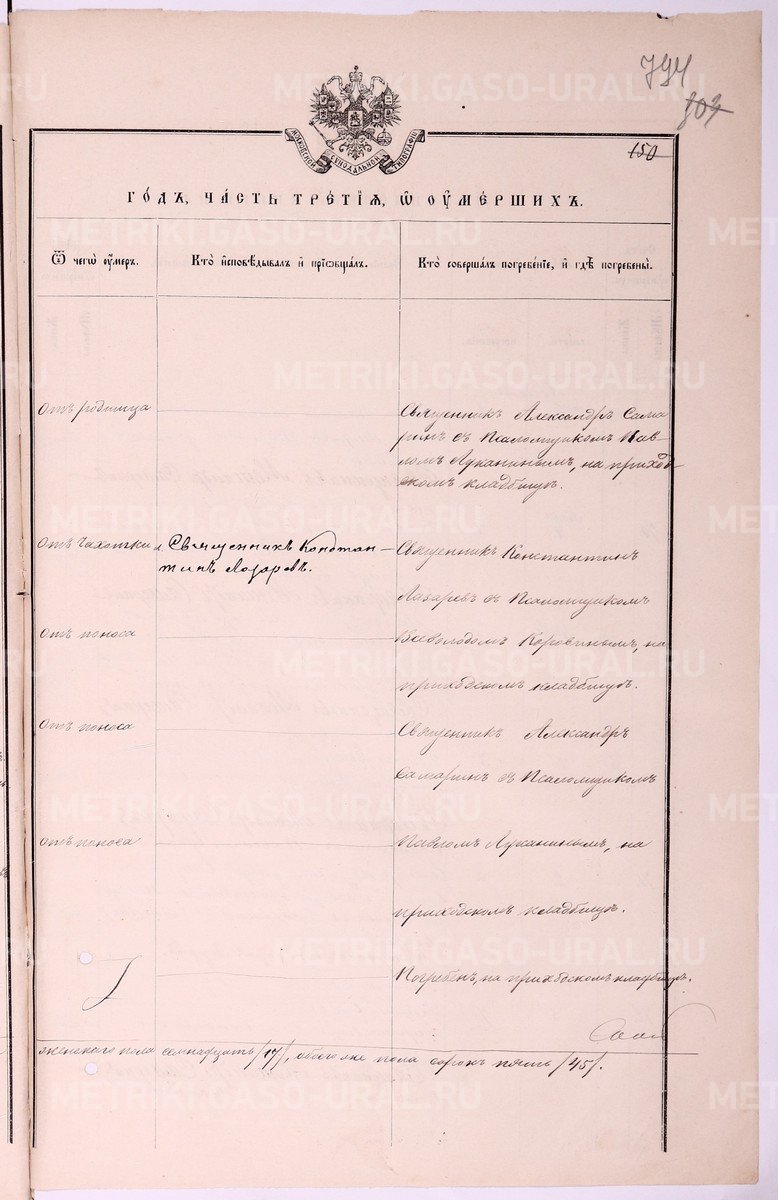 794
807
150
МОСКОВСКОЙ СѴНОДАЛЬНОЙ ТИПОГРАФІИ
ГО́ДЪ, ЧА́СТЬ ТРЕ́ТІЯ, Ѿ ОУ҆МЕ́РШИХЪ.
Ѿ чегѡ̀ оу҆ме́ръ.
Кто̀ и҆сповѣ́дывалъ и҆ прїѡбща́лъ.
Кто̀ соверша́лъ погребе́нїе, и҆ гдѣ̀ погребены̀.
Отъ родимца
Священникъ Александръ Сама
ринъ съ Псаломщикомъ Пав-
ломъ Луканинымъ, на приход
скомъ кладбищѣ.
Отъ чахотки
Священникъ Констан-
тинъ Лазаревъ.
Священникъ Константинъ
Лазаревъ съ Псаломщикомъ
Отъ поноса
Всеволодомъ Коровинымъ, на
приходскомъ кладбищѣ.
Отъ поноса
Священникъ Александръ
Самаринъ съ Псаломщикомъ
Отъ поноса
Павломъ Луканинымъ, на
приходскомъ кладбищѣ.
Погребенъ, на приходскомъ кладбищѣ.
женскаго пола семнадцать /17/, обоего же пола сорокъ пять /45/.
METRIKI.GASO-URAL.RU